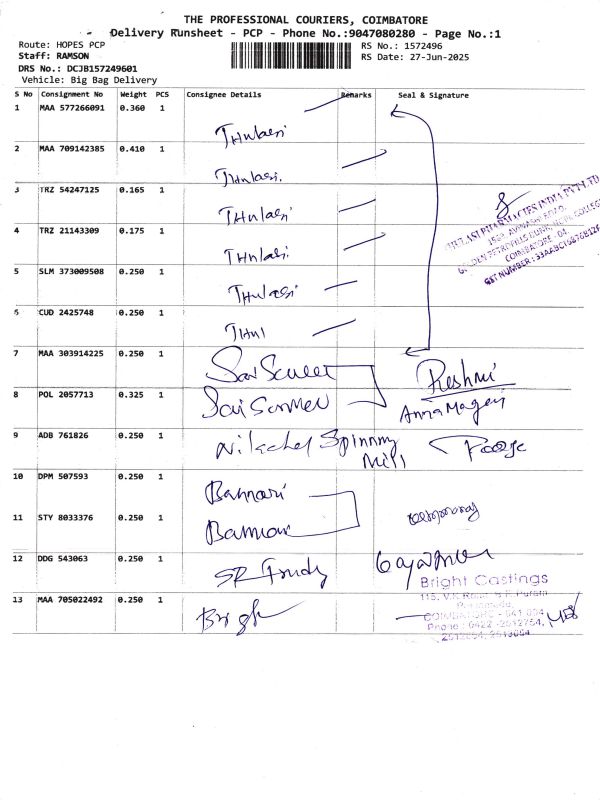 THE PROFESSIONAL COURIERS, COIMBATORE
Delivery Runsheet - PCP - Phone No.:9047080280 - Page No.:1
Route: HOPES PCP
RS No.: 1572496
Staff: RAMSON
RS Date: 27-Jun-2025
DRS No.: DCJB157249601
Vehicle: Big Bag Delivery
S No Consignment No Weight PCS Consignee Details Remarks Seal & Signature
1 MAA 577266091 0.360 1 THulasi
2 MAA 709142385 0.410 1 THulasi.
3 TRZ 54247125 0.165 1 THulasi
4 TRZ 21143309 0.175 1 THulasi.
5 SLM 373009508 0.250 1 THulasi
6 CUD 2425748 0.250 1 THul
7 MAA 303914225 0.250 1 Sai Reshmi
8 POL 2057713 0.325 1 Sai
9 ADB 761826 0.250 1 Spinning Mill Pooja
10 DPM 507593 0.250 1 Bannari
11 STY 8033376 0.250 1 Bannari
12 DDG 543063 0.250 1 SR
Bright Castings
13 MAA 705022492 0.250 1 Brigh
COIMBATORE - 641 004
Phone : 0422 -2512754,
2512654, 2513054